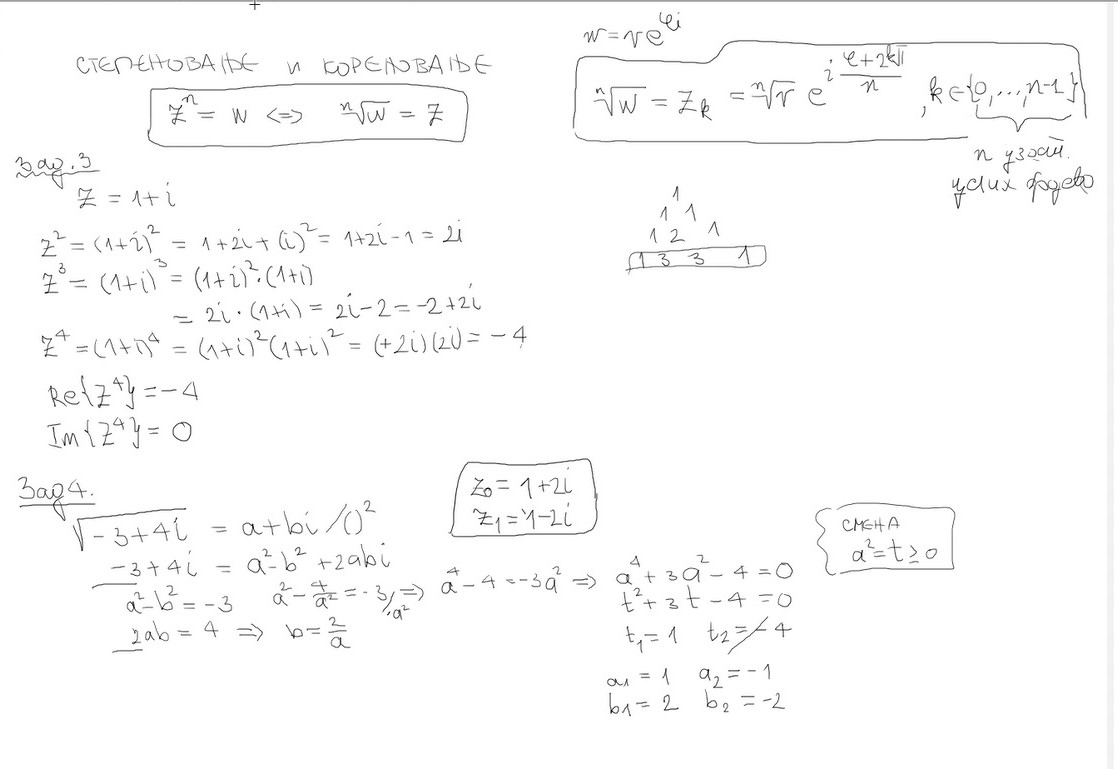 СТЕПЕНОВАЊЕ и КОРЕНОВАЊЕ
zⁿ = w <=> ⁿ√w = z
w = re^(φi)
ⁿ√w = z_k = ⁿ√r e^(i (φ+2kπ)/n), k∈{0,...,n-1}
n
Зад.3
z = 1+i
z² = (1+i)² = 1+2i+(i)² = 1+2i-1 = 2i
z³ = (1+i)³ = (1+i)²·(1+i)
= 2i·(1+i) = 2i-2 = -2+2i
z⁴ = (1+i)⁴ = (1+i)²(1+i)² = (+2i)(2i) = -4
Re{z⁴} = -4
Im{z⁴} = 0
1
1 1
1 2 1
1 3 3 1
Зад4.
√(-3+4i) = a+bi /()²
-3+4i = a²-b²+2abi
a²-b² = -3 a²-4/a² = -3 /·a² => a⁴-4 = -3a² => a⁴+3a²-4=0
2ab = 4 => b = 2/a
z₀ = 1+2i
z₁ = -1-2i
t²+3t-4=0
t₁=1 t₂=-4
a₁=1 a₂=-1
b₁=2 b₂=-2
СМЕНА
a²=t≥0